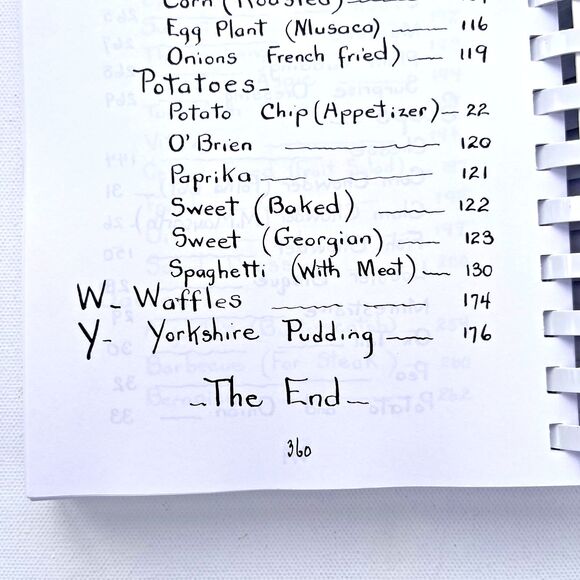 Corn (Roasted)
Egg Plant (Musaca) 116
Onions French fried) 119
Potatoes-
Potato Chip (Appetizer) 22
O'Brien 120
Paprika 121
Sweet (Baked) 122
Sweet (Georgian) 123
Spaghetti (With Meat) 130
W- Waffles 174
Y- Yorkshire Pudding 176
The End
360